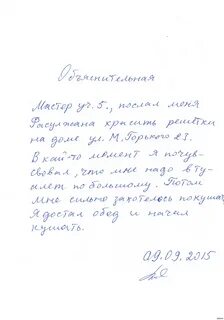 Объяснительная
Мастер уч. 5., послал меня
Фасулжана красить решётки
на доме ул. М. Горького 23.
В какй-то момент я почув-
свовал, что мне надо в ту-
лет по большому. Потом
мне сильно захотелось покушать
Я достал обод и начил
кушать.
09.09.2015